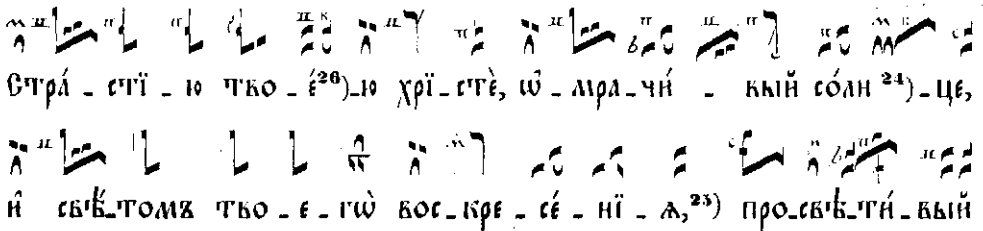 Стра́ - стї - ю тво - е́²⁶)-ю хрї - стѐ, ѡ҆ - мра - чи́ - вый со́лн ²⁴) - це,
и҆ свѣ́ - томъ тво - е - гѡ̀ вос - кре - се́ - нї - ѧ,²³) про - свѣ - ти́ - вый